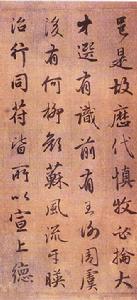 邑是故歷代慎牧必掄大
才選有識前有王洵周虞
後有何柳顏蘇風流互暎
治行同符皆所以宣上德